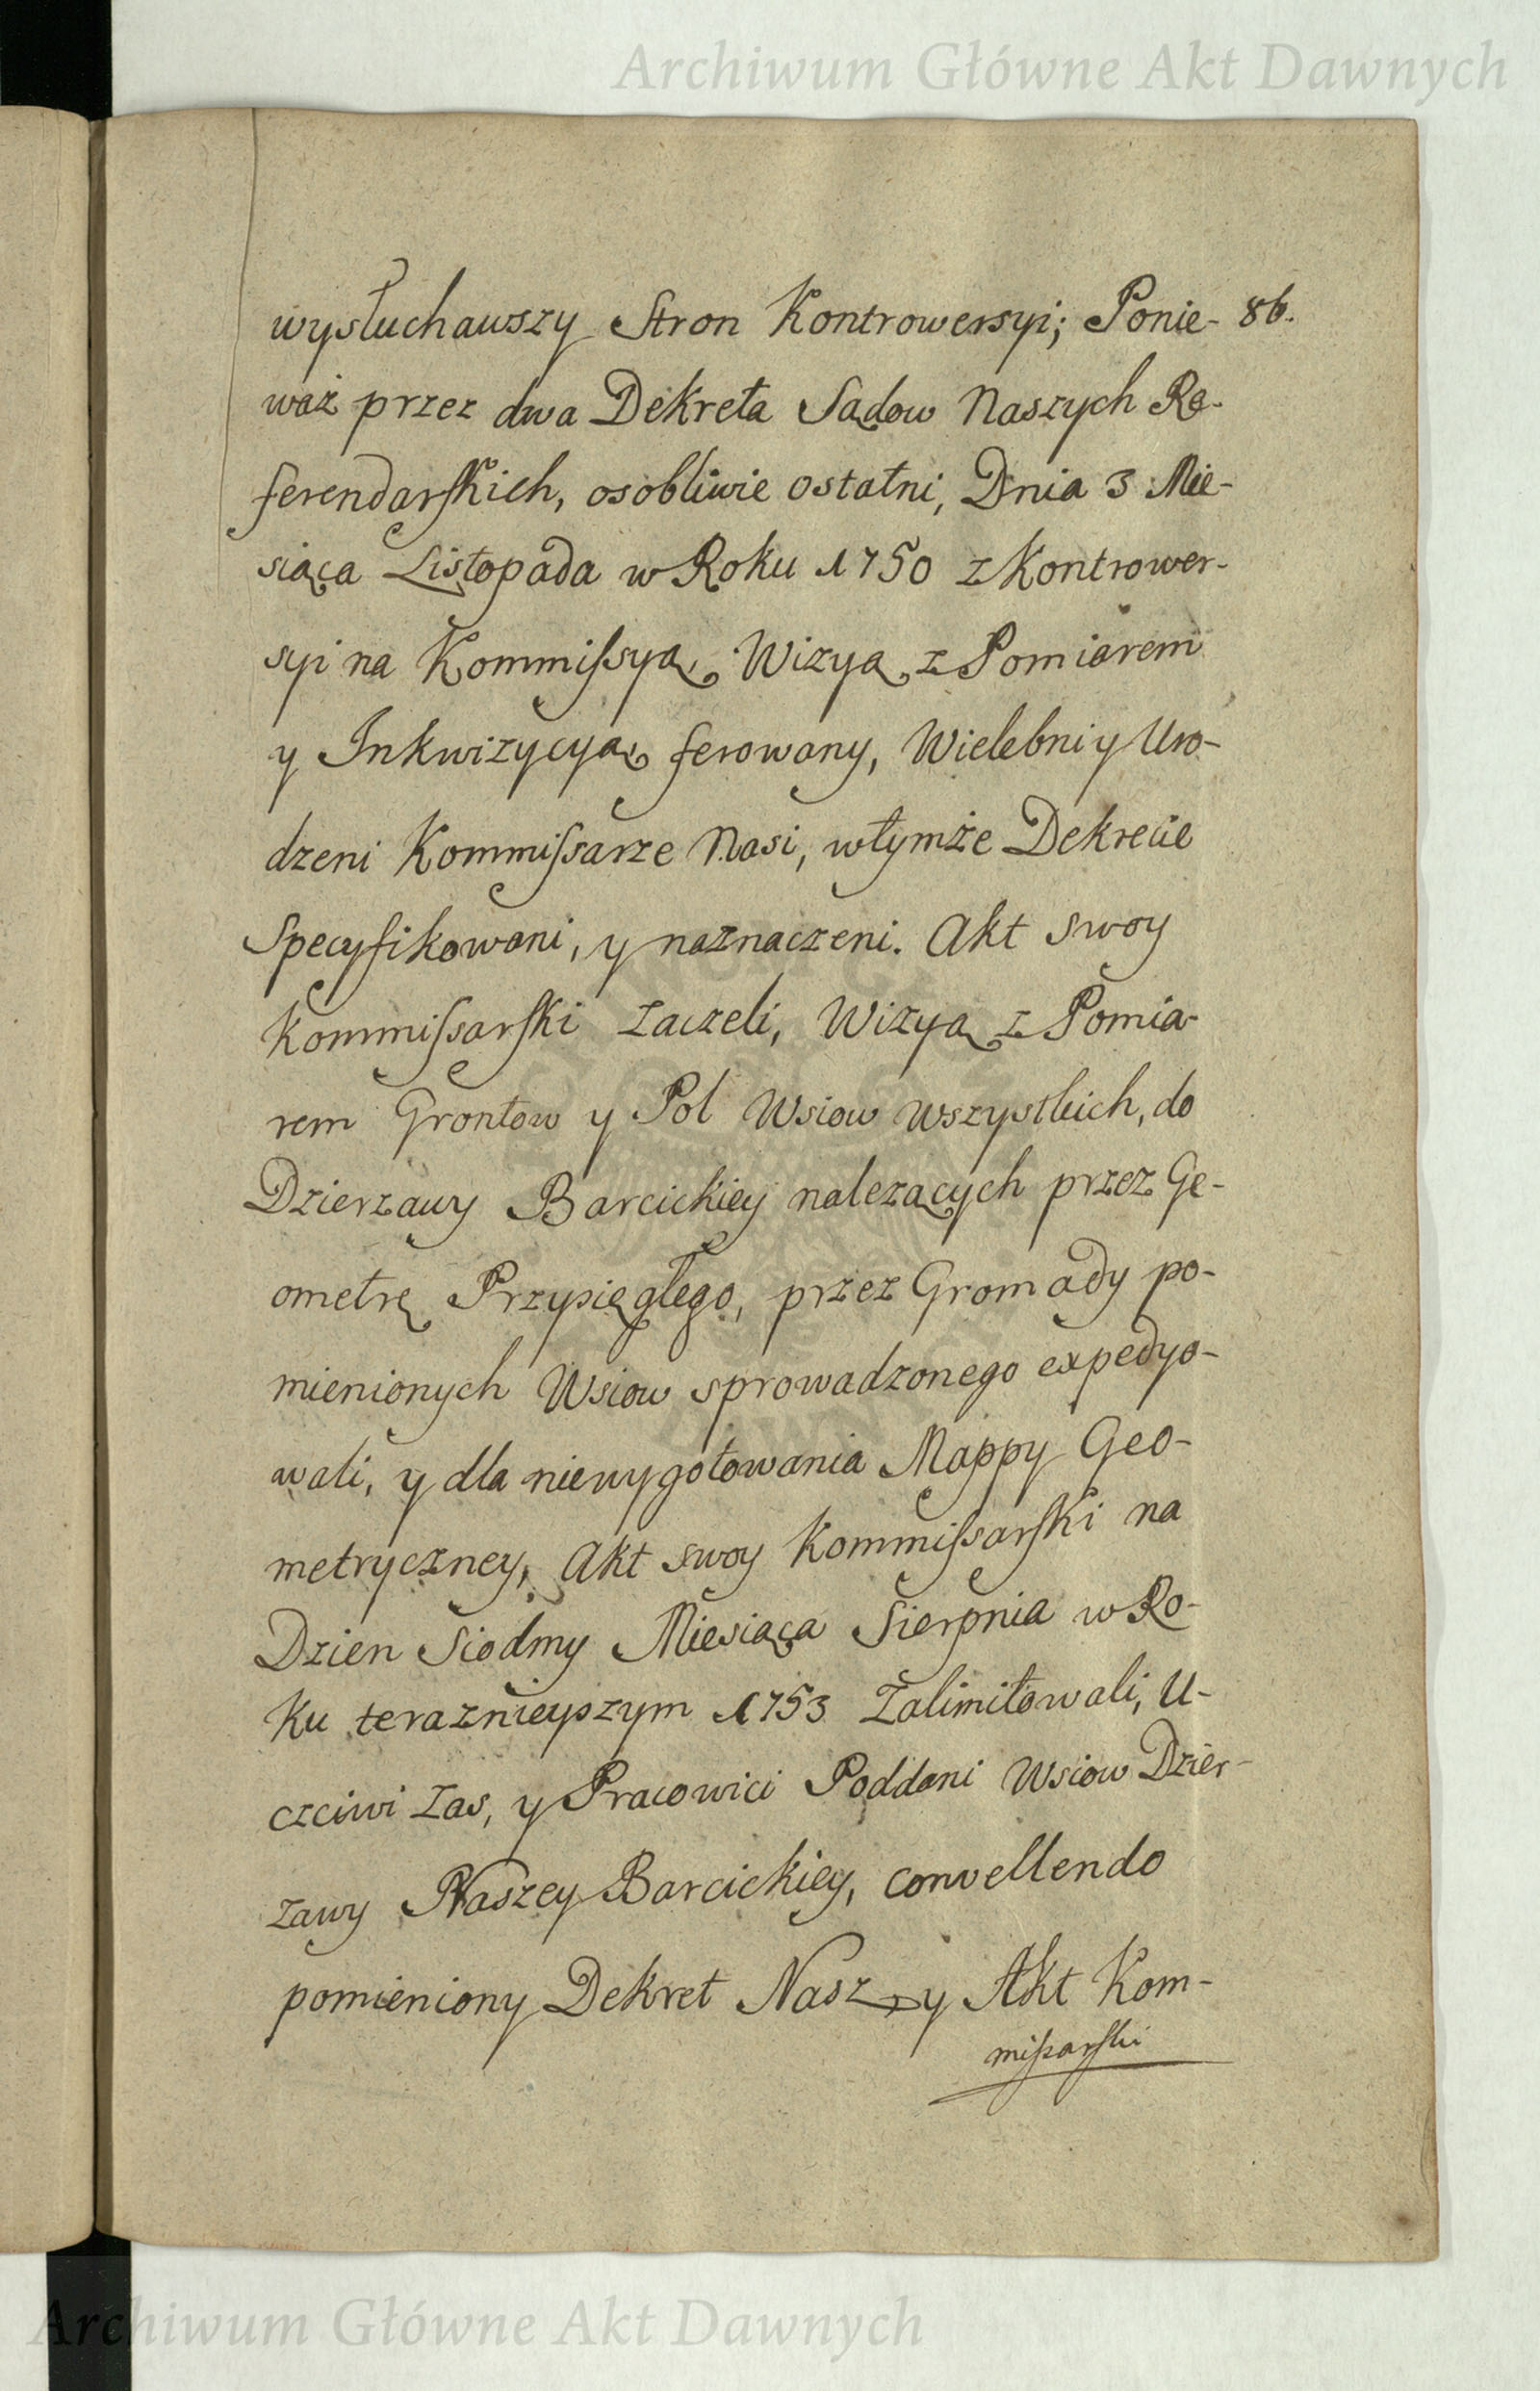 Archiwum Główne Akt Dawnych
wysłuchawszy Stron Kontrowersyi; Ponie- 86.
waż przez dwa Dekreta Sądow Naszych Re-
ferendarskich, osobliwie ostatni, Dnia 3 Mie-
siąca Listopada w Roku 1750 z Kontrower-
syi na Kommissyą, Wizyą z Pomiarem
y Inkwizycyą ferowany, Wielebni y Uro-
dzeni Kommissarze Nasi, wtymże Dekrecie
Specyfikowani, y naznaczeni. Akt swoy
Kommissarski zaczeli, Wizyą z Pomia-
rem Grontow y Pol Wsiow wszystkich, do
Dzierzawy Barcickiey nalezących przez Ge-
ometrę Przysięgłego, przez Gromady po-
mienionych Wsiow sprowadzonego expedyo-
wali, y dla niewygotowania Mappy Geo-
metryczney, Akt swoy Kommissarski na
Dzien Siodmy Miesiąca Sierpnia w Ro-
ku teraznieyszym 1753 Zalimitowali, U-
czciwi zas, y Pracowici Poddani Wsiow Dzier-
zawy Naszey Barcickiey, convellendo
pomieniony Dekret Nasz y Akt Kom-
missarski
Archiwum Główne Akt Dawnych